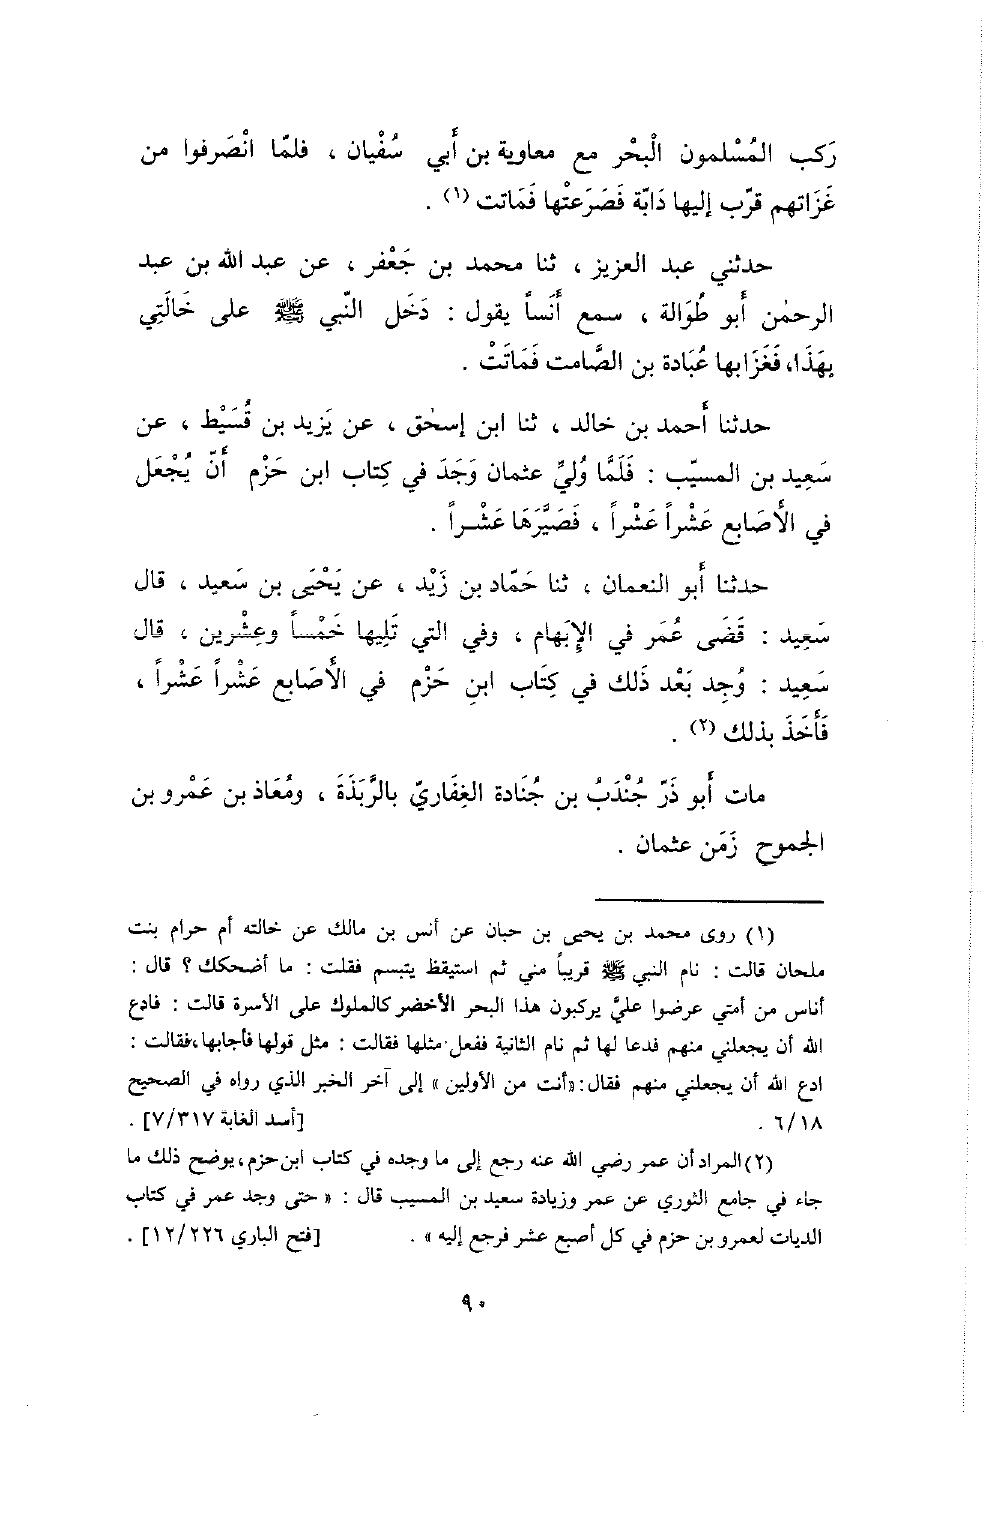 رَكب المُسْلمون الْبحْر مع معاوية بن أَبي سُفْيان ، فلمّا انْصَرفوا من
غَزَاتهم قرّب إليها دَابّة فَصَرَعتْها فَمَاتت (١) .
حدثني عبد العزيز ، ثنا محمد بن جَعْفر ، عن عبد الله بن عبد
الرحمٰن أَبو طُوَالة ، سمع أَنَساً يقول : دَخَل النّبي ﷺ على خَالَتِي
بِهَذَا، فَغَزَا بها عُبَادة بن الصَّامت فَمَاتَتْ .
حدثنا أَحمد بن خالد ، ثنا ابن إسحٰق ، عن يَزيد بن قُسَيْط ، عن
سَعِيد بن المسيّب : فَلَمَّا وُليِّ عثمان وَجَدَ في كِتاب ابن حَزْم أَنّ يُجْعَل
في الأَصَابع عَشْراً عَشْراً ، فَصَيَّرَهَا عَشْـراً .
حدثنا أَبو النعمان ، ثنا حَمَّاد بن زَيْد ، عن يَحْيَى بن سَعيد ، قال
سَعِيد : قَضَى عُمَر في الإِبَهام ، وفي التي تَلِيها خَمْساً وعِشْرين ، قال
سَعِيد : وُجِد بَعْد ذَلك في كِتَاب ابنِ حَزْم في الأَصَابع عَشْراً عَشْراً ،
فَأَخَذَ بذلك (٢) .
مات أَبو ذَرّ جُنْدَبُ بن جُنَادة الغِفَاريّ بالرَّبَذَةَ ، ومُعَاذ بن عَمْرو بن
الجموح زَمَن عثمان .
(١) روى محمد بن يحيى بن حبان عن أنس بن مالك عن خالته أم حرام بنت
ملحان قالت : نام النبي ﷺ قريباً مني ثم استيقظ يتبسم فقلت : ما أضحكك ؟ قال :
أناس من أمتي عرضوا عليَّ يركبون هذا البحر الأخضر كالملوك على الأسرة قالت : فادع
الله أن يجعلني منهم فدعا لها ثم نام الثانية ففعل مثلها فقالت : مثل قولها فأجابها ، فقالت :
ادع الله أن يجعلني منهم فقال : «أنت من الأولين » إلى آخر الخبر الذي رواه في الصحيح
٦/١٨ . [أسد الغابة ٧/٣١٧] .
(٢) المراد أن عمر رضي الله عنه رجع إلى ما وجده في كتاب ابن حزم ، يوضح ذلك ما
جاء في جامع الثوري عن عمر وزيادة سعيد بن المسيب قال : « حتى وجد عمر في كتاب
الديات لعمرو بن حزم في كل أصبع عشر فرجع إليه » . [فتح الباري ١٢/٢٢٦] .
٩٠